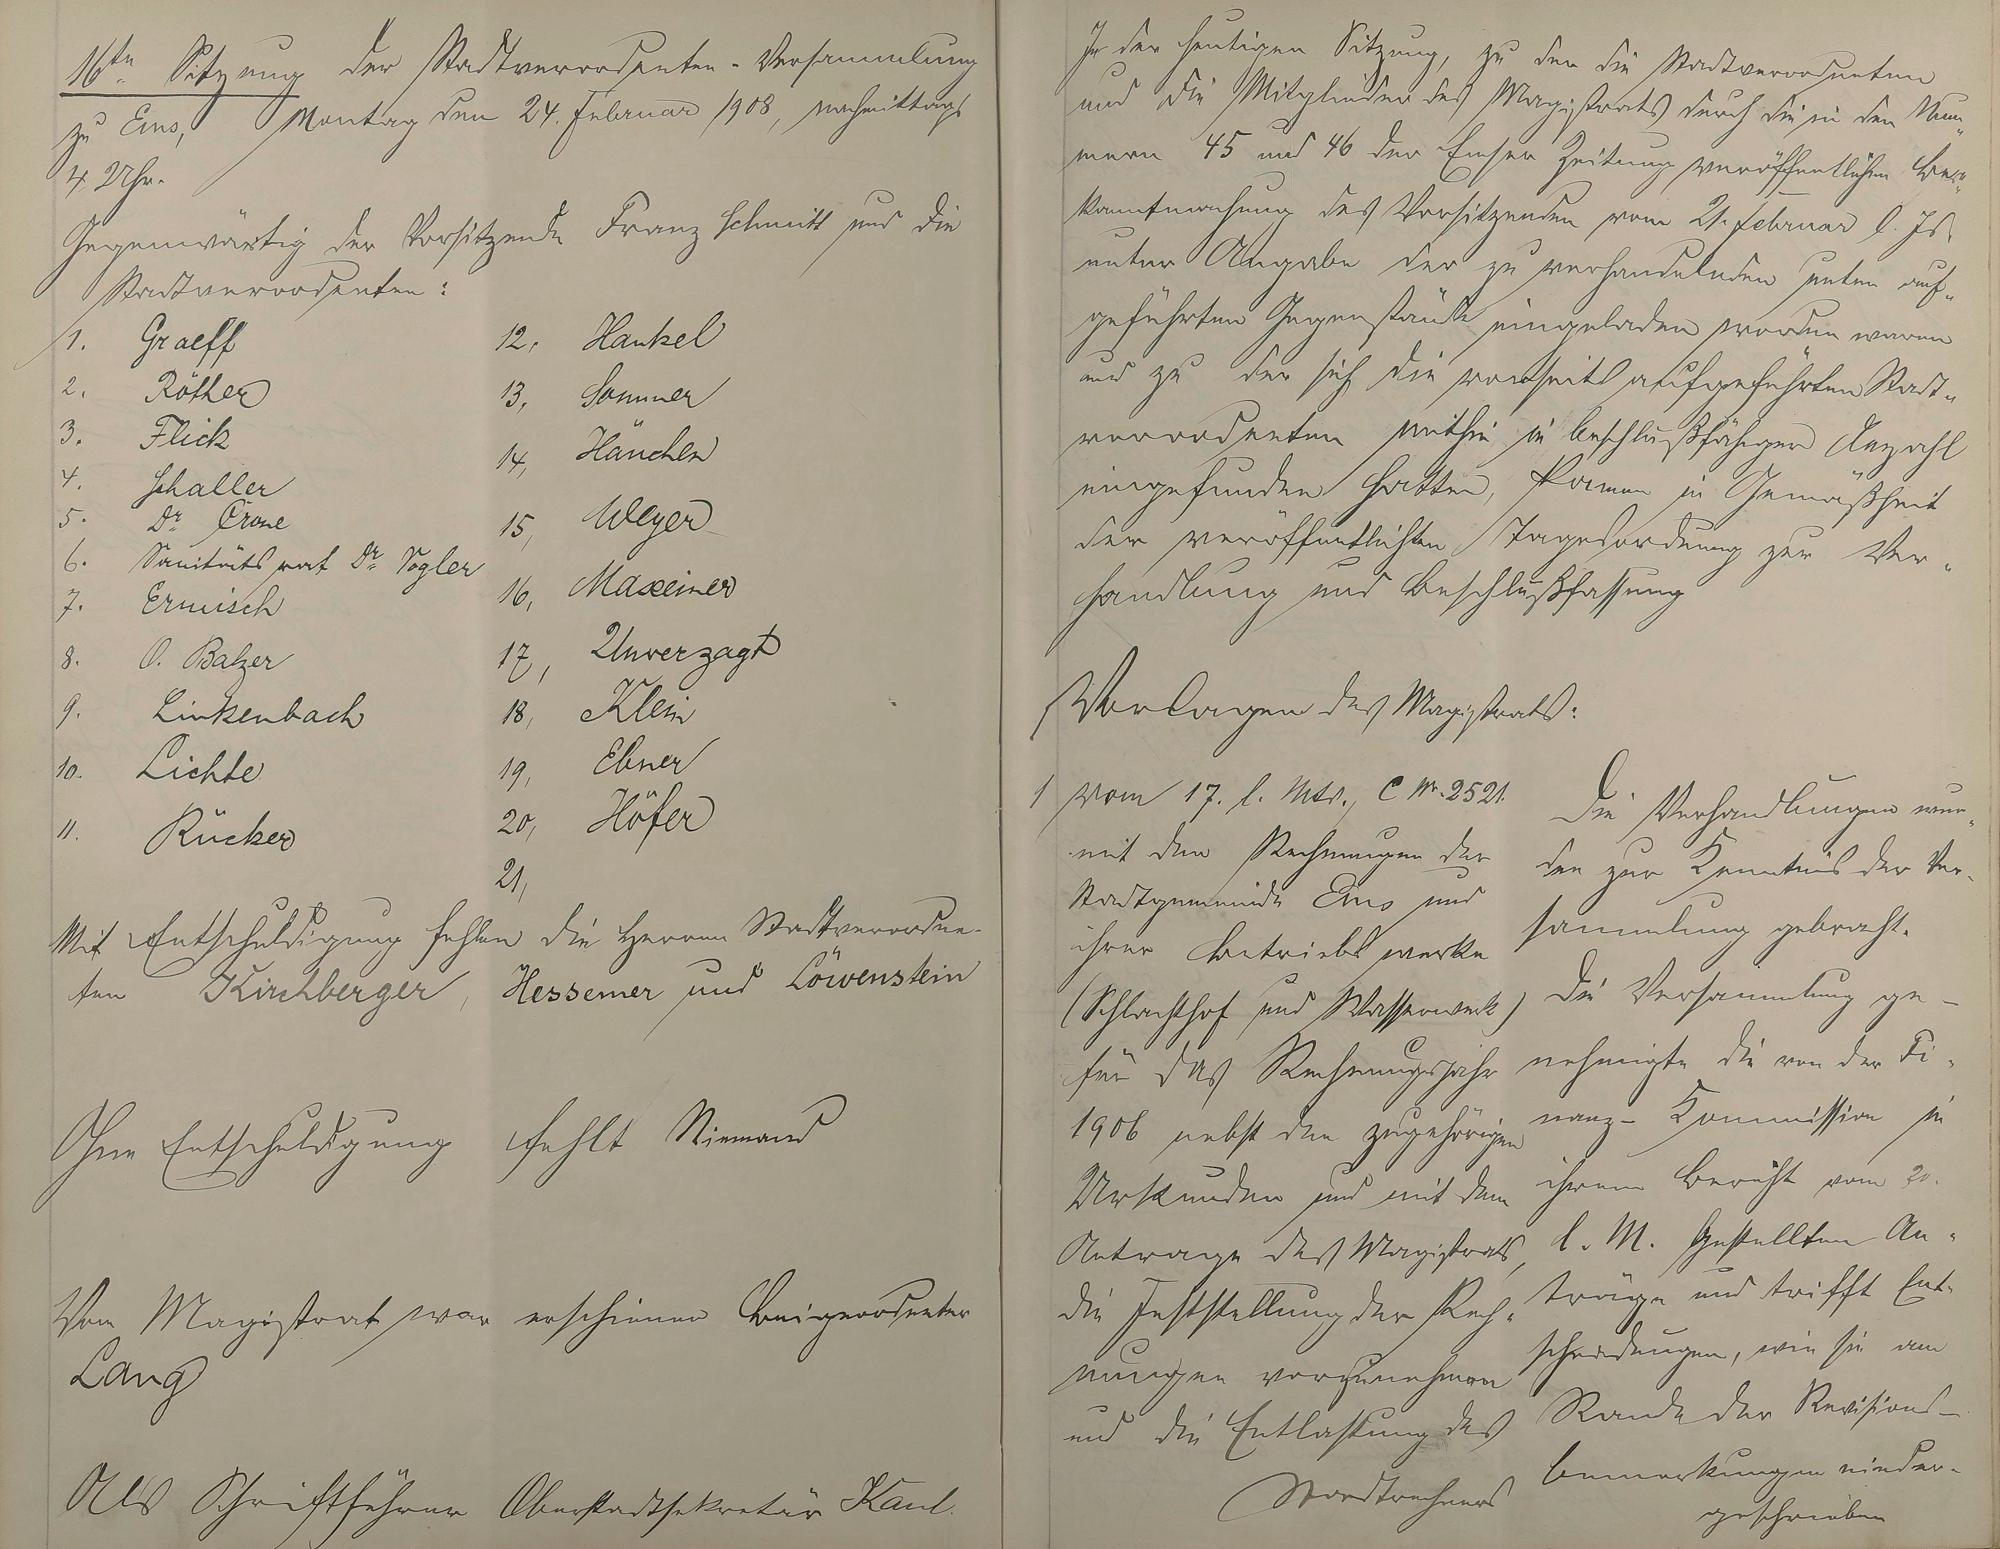 16te Sitzung der Stadtverordneten-Versammlung
zu Ems, Montag den 24. Februar 1908, nachmittags
4 Uhr.
Gegenwärtig der Vorsitzende Franz Schmitt und die
Stadtverordneten:
1. Graeff
2. Röther
3. Flick
4. Schaller
5. Dr. Crone
6. Sanitätsrat Dr. Vogler
7. Ermisch
8. O. Balzer
9. Linkenbach
10. Lichte
11. Rücker
12, Hankel
13, Sommer
14, Hänchen
15, Weyer
16, Maxeiner
17, Unverzagt
18, Klein
19, Ebner
20, Höfer
21,
Mit Entschuldigung fehlen die Herren Stadtverordne-
ten Kirchberger, Hessemer und Löwenstein
Ohne Entschuldigung fehlt Niemand
Vom Magistrat war erschienen Beigeordneter
Lang
Als Schriftführer Oberstadtsekretär Kaul.
In der heutigen Sitzung, zu der die Stadtverordneten
und die Mitglieder des Magistrats durch die in den Num-
mern 45 und 46 der Emser Zeitung veröffentlichten Be-
kanntmachung des Vorsitzenden vom 21. Februar l. Js.
unter Angabe der zu verhandelnden unten auf-
geführten Gegenstände eingeladen worden waren
und zu der sich die vorseits aufgeführten Stadt-
verordneten mithin in beschlußfähiger Anzahl
eingefunden hatten, kamen in Gemäßheit
der veröffentlichten Tagesordnung zur Ver-
handlung und Beschlußfassung
Vorlagen des Magistrats:
1 vom 17. l. Mts., C Nr. 2521.
mit den Rechnungen der
Stadtgemeinde Ems und
ihrer Betriebswerke
(Schlachthof und Wasserwerk)
für das Rechnungsjahr
1906 nebst den zugehörigen
Urkunden und mit dem
Antrage des Magistrats,
die Feststellung der Rech-
nungen vorzunehmen
und die Entlastung des
Stadtrechners
Die Verhandlungen wur-
den zur Kenntnis der Ver-
sammlung gebracht.
Die Versammlung ge-
nehmigte die von der Fi-
nanz-Kommission in
ihrem Bericht vom 20.
l. M. gestellten An-
träge und trifft Ent-
scheidungen, wie sie am
Rande der Revisions-
bemerkungen nieder-
geschrieben